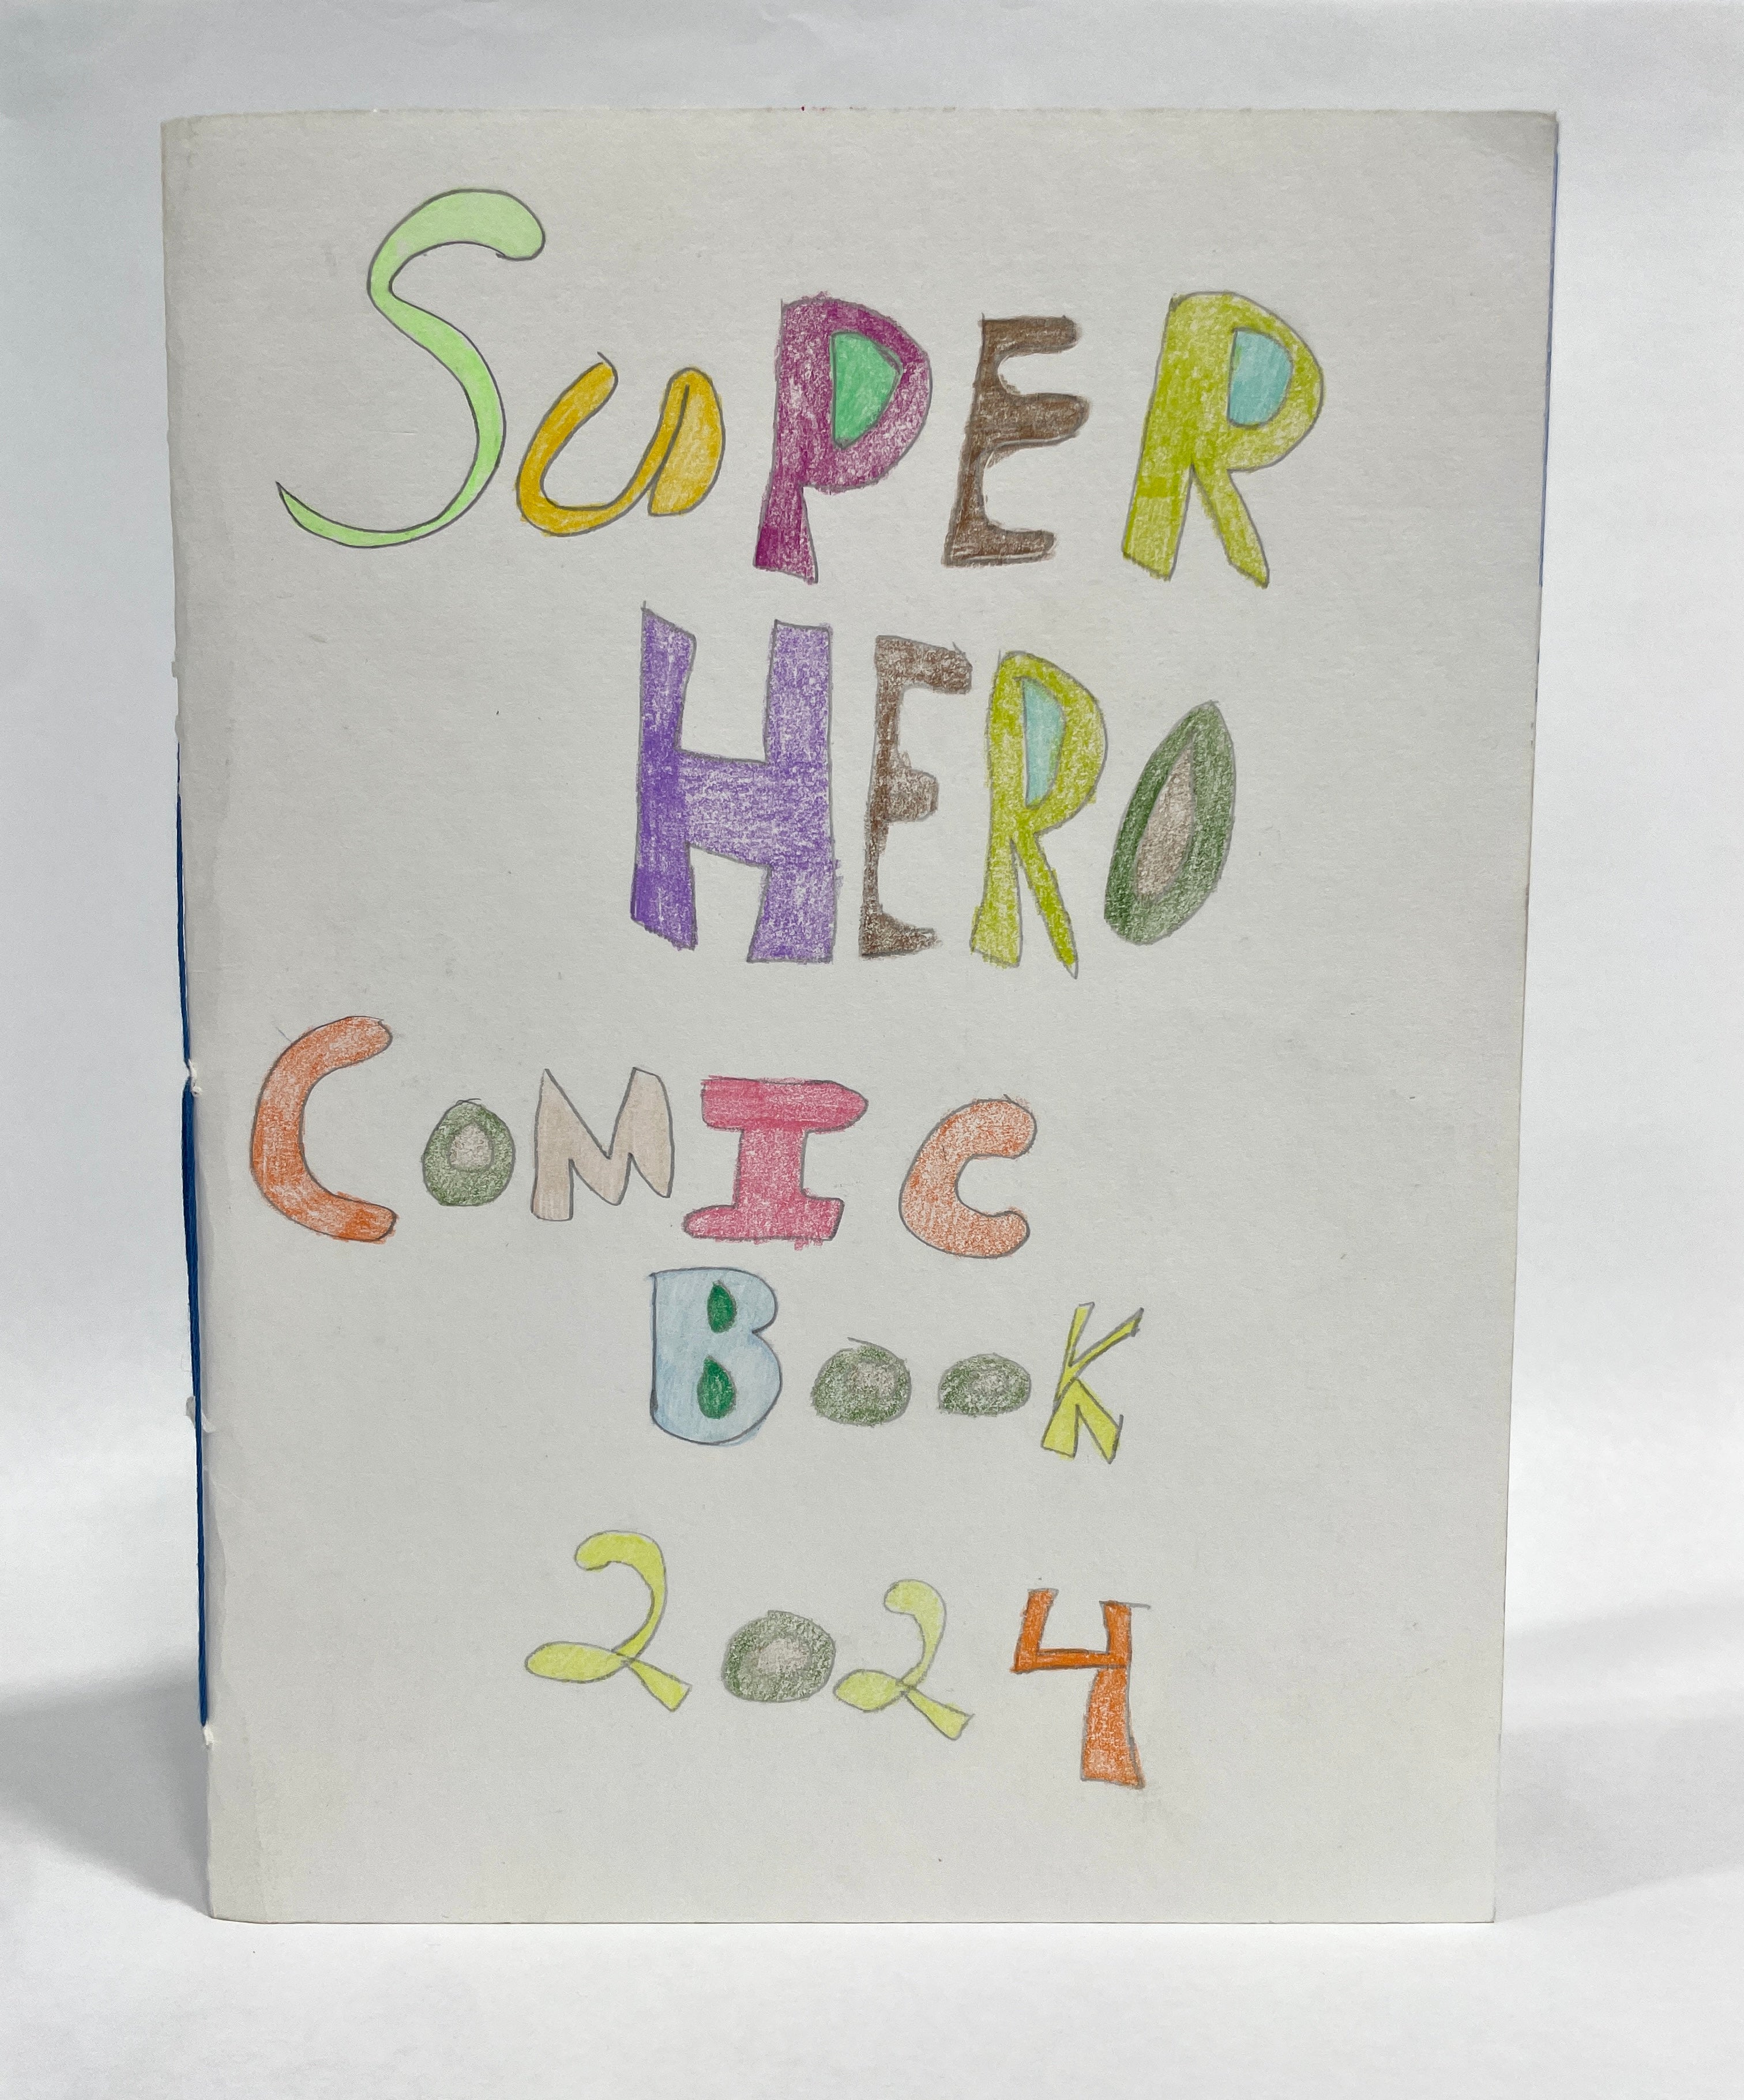 SuPER
HERO
COMIC
BooK
2024